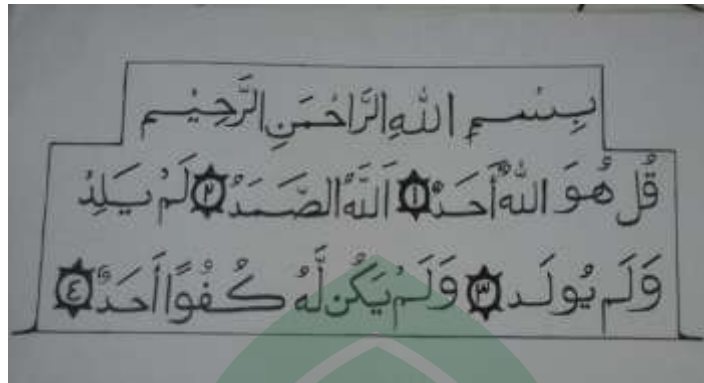 بِسْمِ اللّٰهِ الرَّاحْمَنِ الرَّحِيْمِ
قُلْ هُوَ اللّٰهُ أَحَدٌ ١ اَللّٰهُ الصَّمَدُ ٢ لَمْ يَلِدْ
وَلَمْ يُولَد ٣ وَلَمْ يَكُن لَّهُ كُفُوًا أَحَدٌ ٤